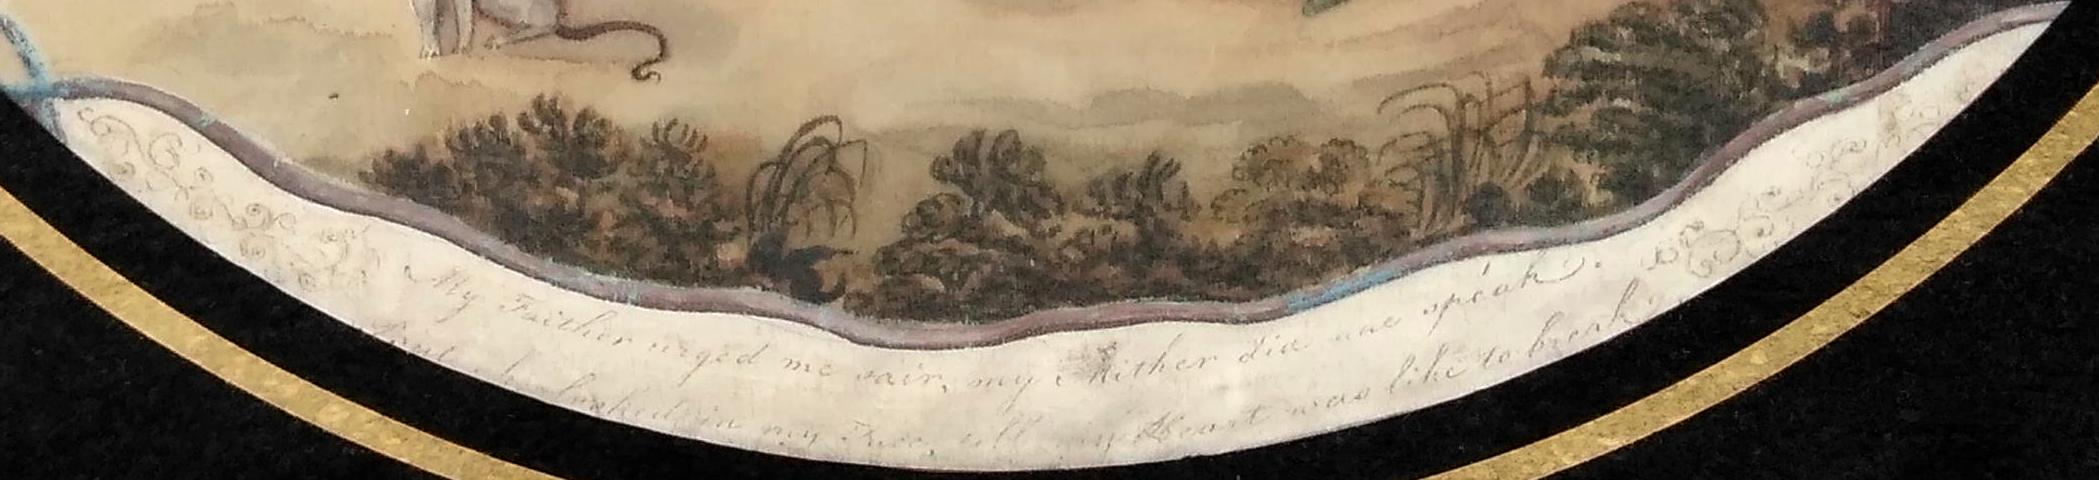 My Faither urged me sair, my Mither did nae speak.
But he looked in my Face, till my Heart was like to break